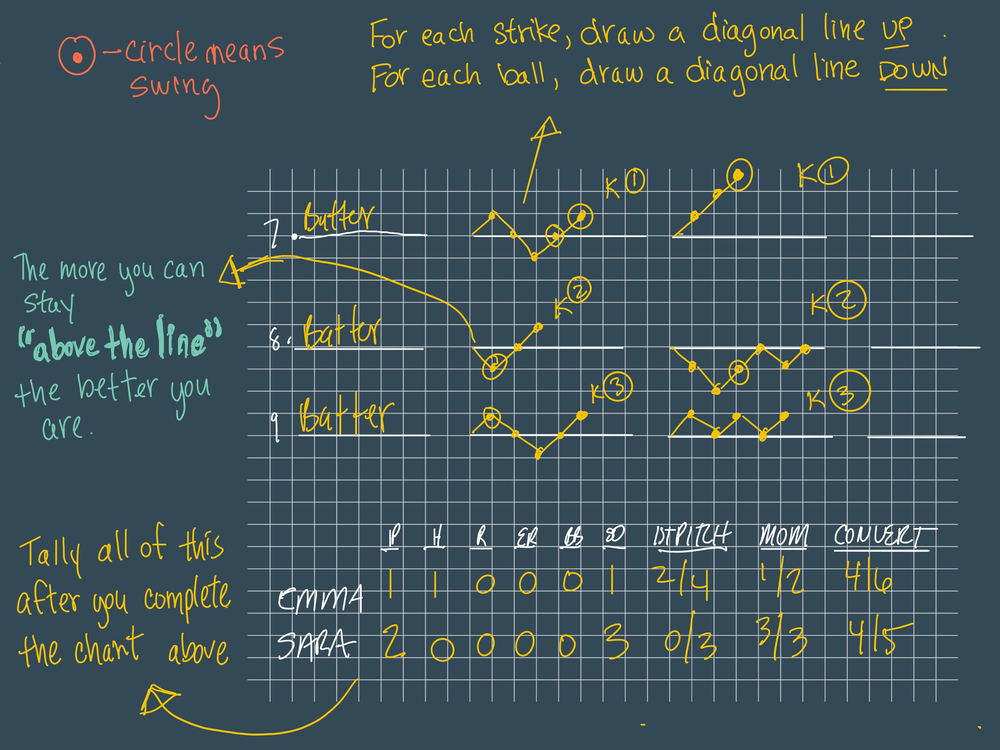 - circle means
swing
For each strike, draw a diagonal line UP.
For each ball, draw a diagonal line DOWN
K 1
K 1
7. Batter
The more you can
stay
"above the line"
the better you
are.
K 2
K 2
8. Batter
K 3
K 3
9 Batter
Tally all of this
after you complete
the chart above
IP H R ER BB SO 1ST PITCH MOM CONVERT
EMMA 1 1 0 0 0 1 2/4 1/2 4/6
SARA 2 0 0 0 0 3 0/3 3/3 4/5